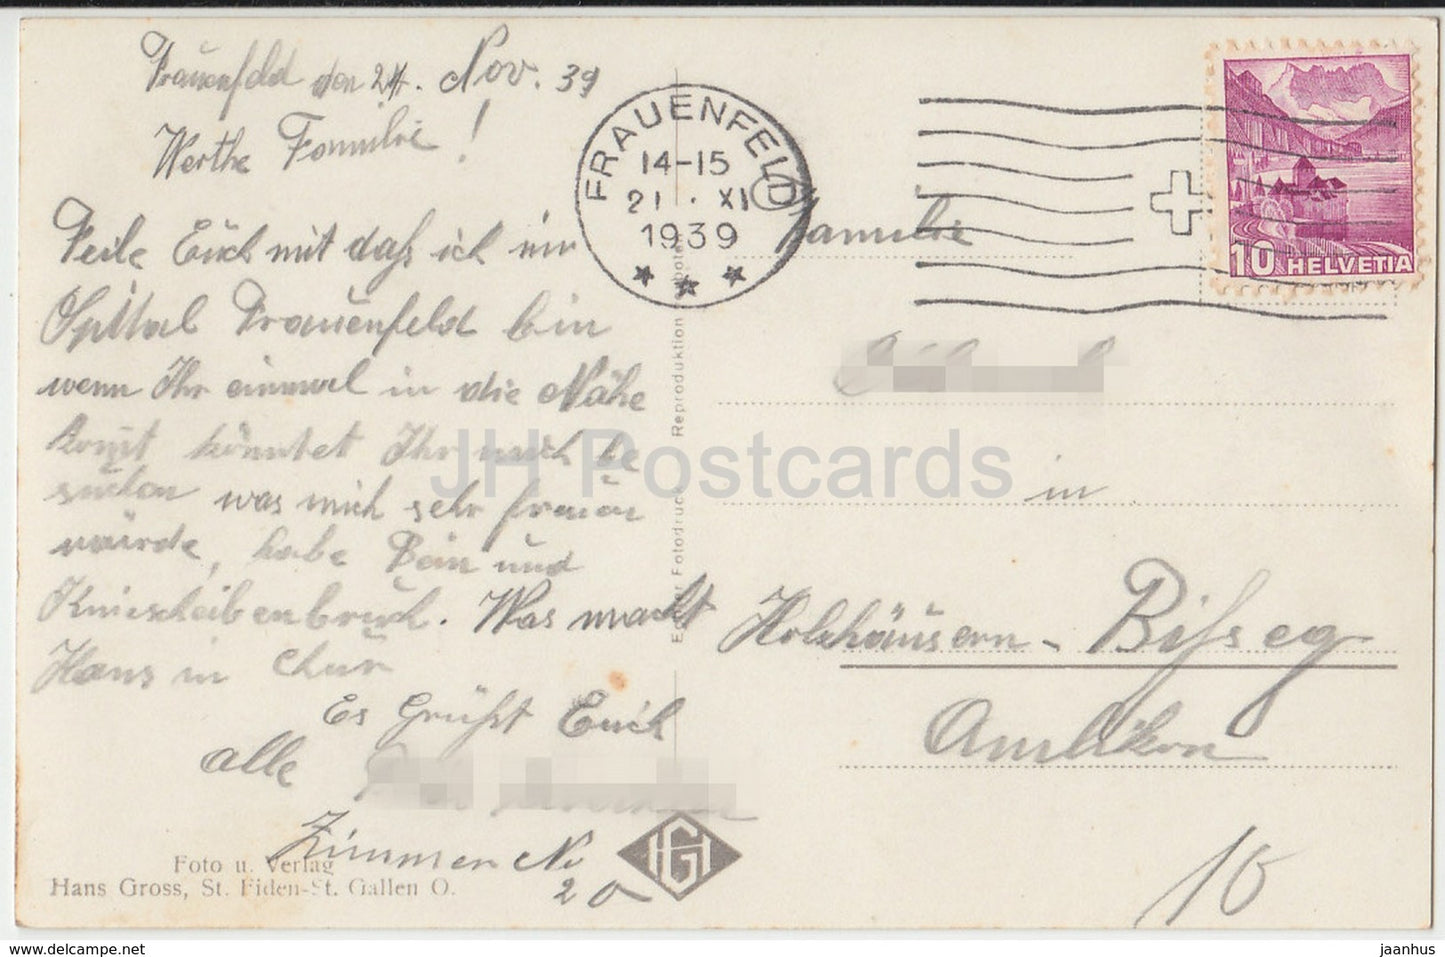 Frauenfeld den 21. Nov. 39
Werthe Familie!
Teile Euch mit daß ich im
Spital Frauenfeld bin
wenn Ihr einmal in die Nähe
komt könntet Ihr mich be
suchen was mich sehr freuen
würde, habe Bein und
Kniescheibenbruch. Was macht
Hans in Chur
Es Grüßt Euch
alle
Zimmer No
20
Foto u. Verlag
Hans Gross, St. Fiden-St. Gallen O.
HG
Echter Fotodruck Reproduktion verboten
FRAUENFELD
14-15
21. XI
1939
10 HELVETIA
Familie
in
Holzhäusern - Bißegg
Amlikon
10
JH Postcards
https://www.delcampe.net
jaanhus